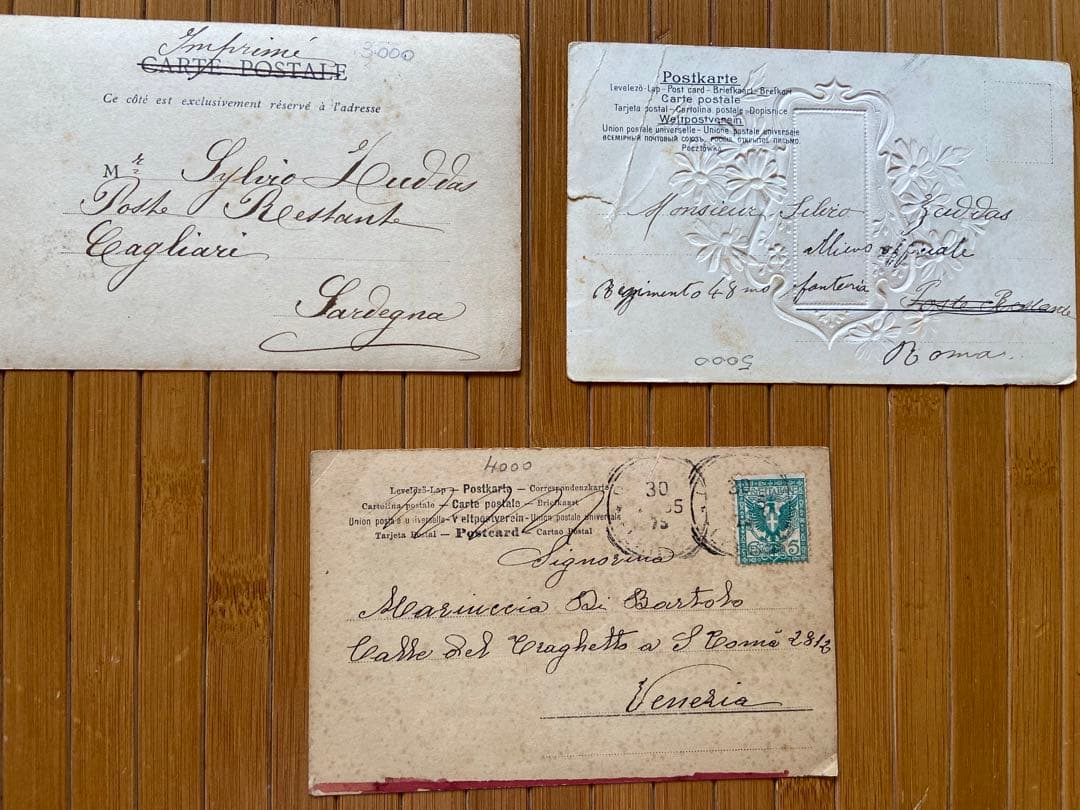 Imprimé
3000
CARTE POSTALE
Ce côté est exclusivement réservé à l'adresse
Mr Sylvio Zuddas
Poste Restante
Cagliari
Sardegna
Postkarte
Levelező-Lap - Post card - Briefkaart - Brefkort
Carte postale
Tarjeta postal - Cartolina postale Dopisnice
Weltpostverein
Union postale universelle - Unione postale universale
ВСЕМІРНЫЙ ПОЧТОВЫЙ СОЮЗЪ. РОССІЯ. ОТКРЫТОЕ ПИСЬМО.
Pocztówka
Monsieur Silvio Zuddas
Allievo ufficiale
Reggimento 48mo fanteria Poste Restante
Roma
5000
4000
Levelező-Lap — Postkarte — Correspondenzkarte
Cartolina postale — Carte postale — Briefkaart
Union postale universelle - Weltpostverein - Union postale universale
Tarjeta Postal — Postcard — Cartao Postal
30
5
Signorina
Mariuccia Di Bartolo
Calle del Traghetto a S Tomà 2812
Venezia